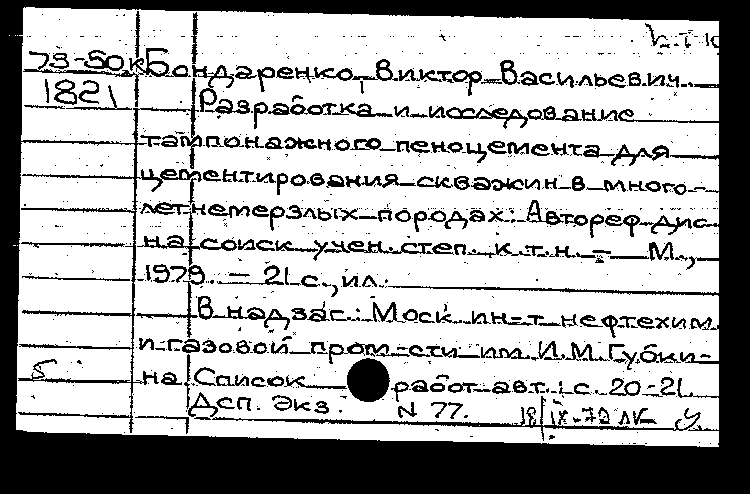 к.т.н
79-50к Бондаренко, Виктор Васильевич.
1821 Разработка и исследование
тампонажного пеноцемента для
цементирования скважин в много-
летнемерзлых породах: Автореф дис
на соиск учен. степ. к.т.н. – М.,
1979. – 21 с., ил.
В надзаг.: Моск ин-т нефтехим.
и газовой пром-сти им. И.М. Губки-
5 на. Список работ авт.: с. 20-21.
Дсп. Экз. N 77. 18/IX-79